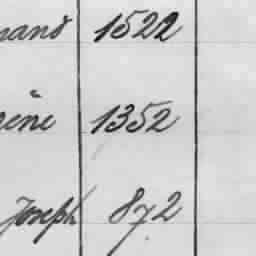 nand 1522
1352
Joseph 872